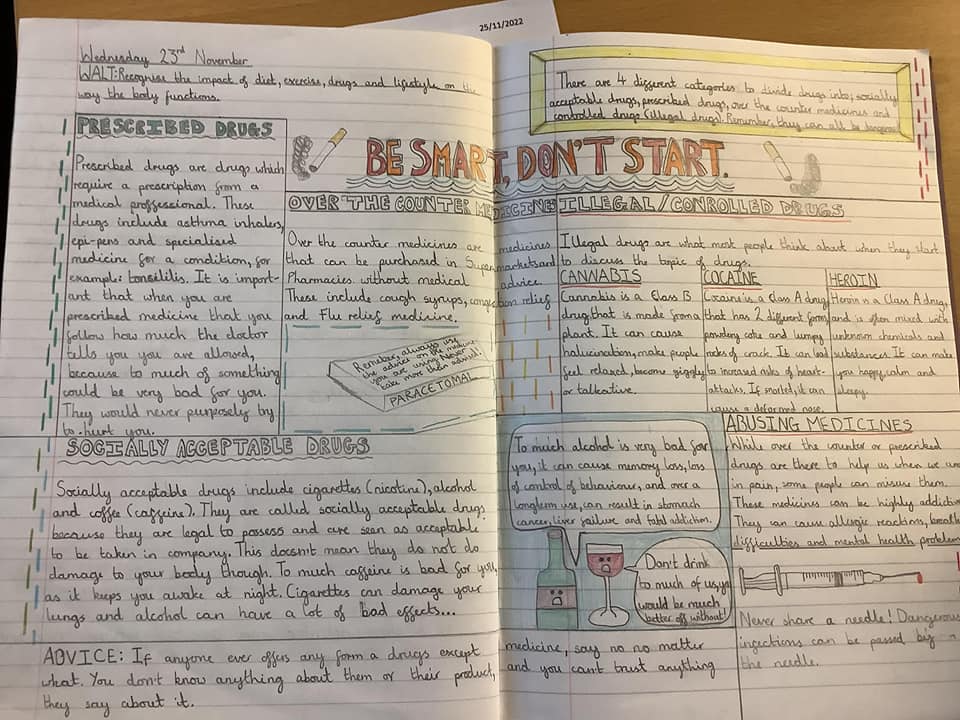 25/11/2022
Wednesday 23rd November
WALT: Recognise the impact of diet, exercise, drugs and lifestyle on the
way the body functions.
There are 4 different categories to divide drugs into; socially
acceptable drugs, prescribed drugs, over the counter medicines and
controlled drugs (illegal drugs). Remember, they can all be dangerous
BE SMART, DON'T START.
PRESCRIBED DRUGS
Prescribed drugs are drugs which
require a prescription from a
medical proffessional. These
drugs include asthma inhalers,
epi-pens and specialised
medicine for a condition, for
example: tonsilitis. It is import-
ant that when you are
prescribed medicine that you
follow how much the doctor
tells you you are allowed,
because to much of something
could be very bad for you.
They would never purposely by
to hurt you.
OVER THE COUNTER MEDICINES
Over the counter medicines are medicines
that can be purchased in Supermarkets and
Pharmacies without medical advice.
These include cough syrups, congestion relief
and Flu relief medicine.
Remember, always use
the advice on the medicine
you are using. Never
take more then advised!
PARACETOMAL
ILLEGAL/CONROLLED DRUGS
Illegal drugs are what most people think about when they start
to discuss the topic of drugs.
CANNABIS
Cannabis is a Class B
drug that is made from a
plant. It can cause
halucination, make people
feel relaxed, become giggly
or talkative.
COCAINE
Cocaine is a class A drug
that has 2 different forms
powdery coke and lumpy
rocks of crack. It can lead
to increased risks of heart-
attacks. If snorted, it can
cause a deformed nose.
HEROIN
Heroin is a Class A drug,
and is often mixed with
unknown chemicals and
substances. It can make
you happy, calm and
sleepy.
SOCIALLY ACCEPTABLE DRUGS
Socially acceptable drugs include cigarettes (nicotine), alcohol
and coffee (caffeine). They are called socially acceptable drugs
because they are legal to possess and are seen as acceptable
to be taken in company. This doesn't mean they do not do
damage to your body though. To much caffeine is bad for you,
as it keeps you awake at night. Cigarettes can damage your
lungs and alcohol can have a lot of bad effects...
To much alcohol is very bad for
you, it can cause memory loss, loss
of control of behaviour, and over a
longterm use, can result in stomach
cancer, liver failure and fatal addiction.
Don't drink
to much of us, you
would be much
better off without!
ABUSING MEDICINES
While over the counter or prescribed
drugs are there to help us when we are
in pain, some people can misuse them.
These medicines can be highly addictive
They can cause allergic reactions, breath
difficulties and mental health problems
Never share a needle! Dangerous
infections can be passed by
the needle.
ADVICE: If anyone ever offers any form a drugs except medicine, say no no matter
what. You don't know anything about them or their product, and you cant trust anything
they say about it.